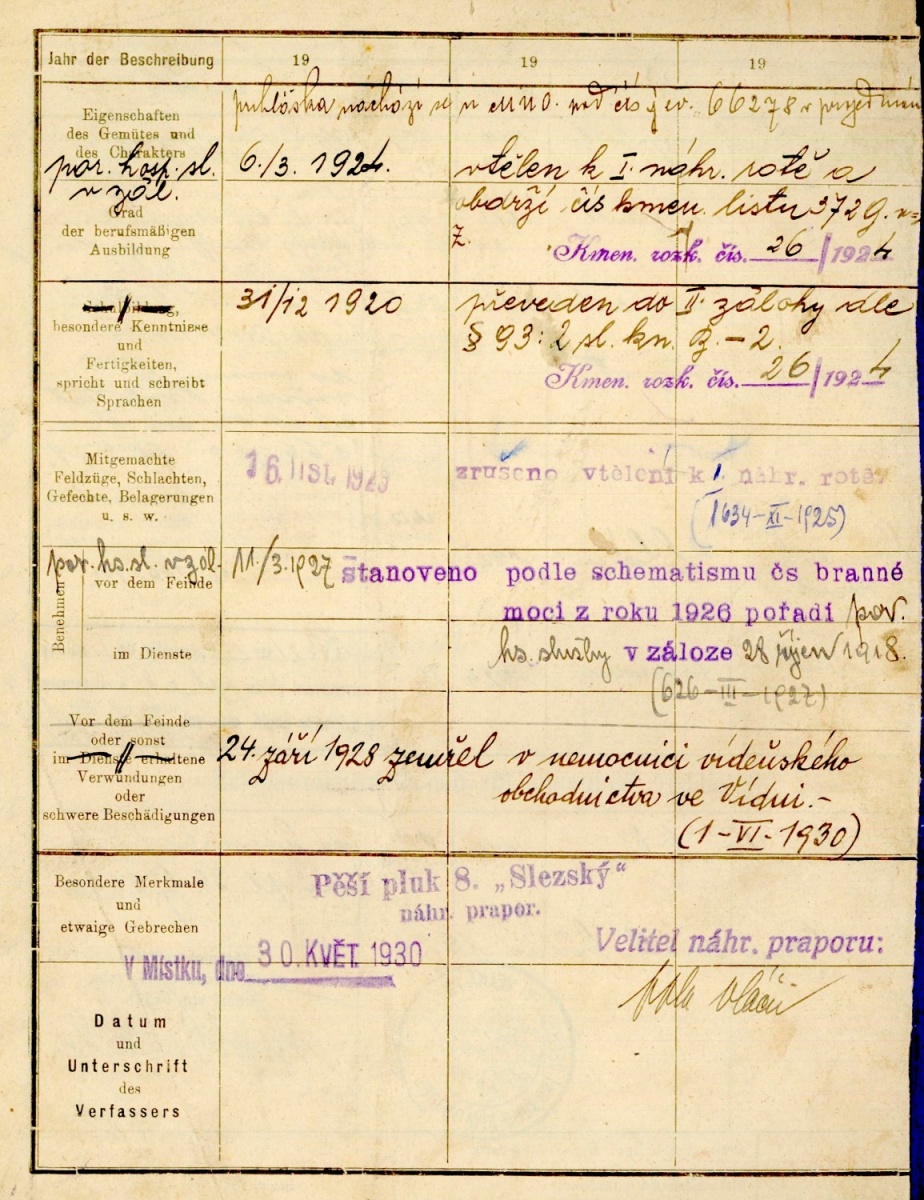 Jahr der Beschreibung 19 19 19
nachází se u MNO. pod čís. 66278
Eigenschaften
des Gemütes und
des Charakters
por. hosp. sl. 6./3. 1924. vtělen k I. náhr. rotě a
v zál. obdrží čís kmen. listu 372
Grad
der berufsmäßigen
Ausbildung
Kmen. rozk. čís. 26/1924
31/12 1920 převeden do II. zálohy dle
besondere Kenntnisse
§ 93:2 sl. kn. B. – 2.
und
Fertigkeiten,
spricht und schreibt
Sprachen
Kmen. rozk. čís. 26/1924
Mitgemachte
Feldzüge, Schlachten,
Gefechte, Belagerungen
u. s. w.
16. list. 1925 zrušeno vtělení k I. náhr. rotě
(1634-XI-1925)
por. hs. sl. v zál. 11./3. 1927 stanoveno podle schematismu čs branné
Benehmen
vor dem Feinde
moci z roku 1926 pořadí por.
im Dienste
hs. služby v záloze 28 říjen 1918.
(626-III-1927)
Vor dem Feinde
oder sonst
im Dienste erhaltene
Verwundungen
oder
schwere Beschädigungen
24. září 1928 zemřel v nemocnici vídeňského
obchodnictva ve Vídni.-
(1-VI-1930)
Besondere Merkmale
und
etwaige Gebrechen
Pěší pluk 8. „Slezský“
náhr. prapor.
V Místku, dne 30. KVĚT. 1930
Velitel náhr. praporu:
Datum
und
Unterschrift
des
Verfassers